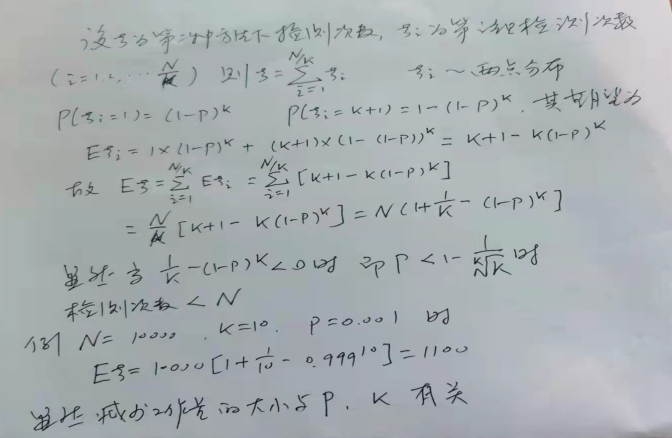 设ξ为第二种方法下检测次数, ξᵢ为第i组检测次数
(i=1,2,…N/K) 则ξ=∑_{i=1}^{N/K} ξᵢ ξᵢ~两点分布
P(ξᵢ=1)=(1-P)^K P(ξᵢ=K+1)=1-(1-P)^K, 其期望为
Eξᵢ=1×(1-P)^K+(K+1)×(1-(1-P))^K=K+1-K(1-P)^K
故 Eξ=∑_{i=1}^{N/K} Eξᵢ=∑_{i=1}^{N/K}[K+1-K(1-P)^K]
=N/K[K+1-K(1-P)^K]=N(1+1/K-(1-P)^K]
显然当 1/K-(1-P)^K<0时 即P<1-1/ᴷ√K时
检测次数<N
例 N=10000, K=10, P=0.001 时
Eξ=1000[1+1/10-0.999^10]=1100
显然减少工作量的大小与P、K有关